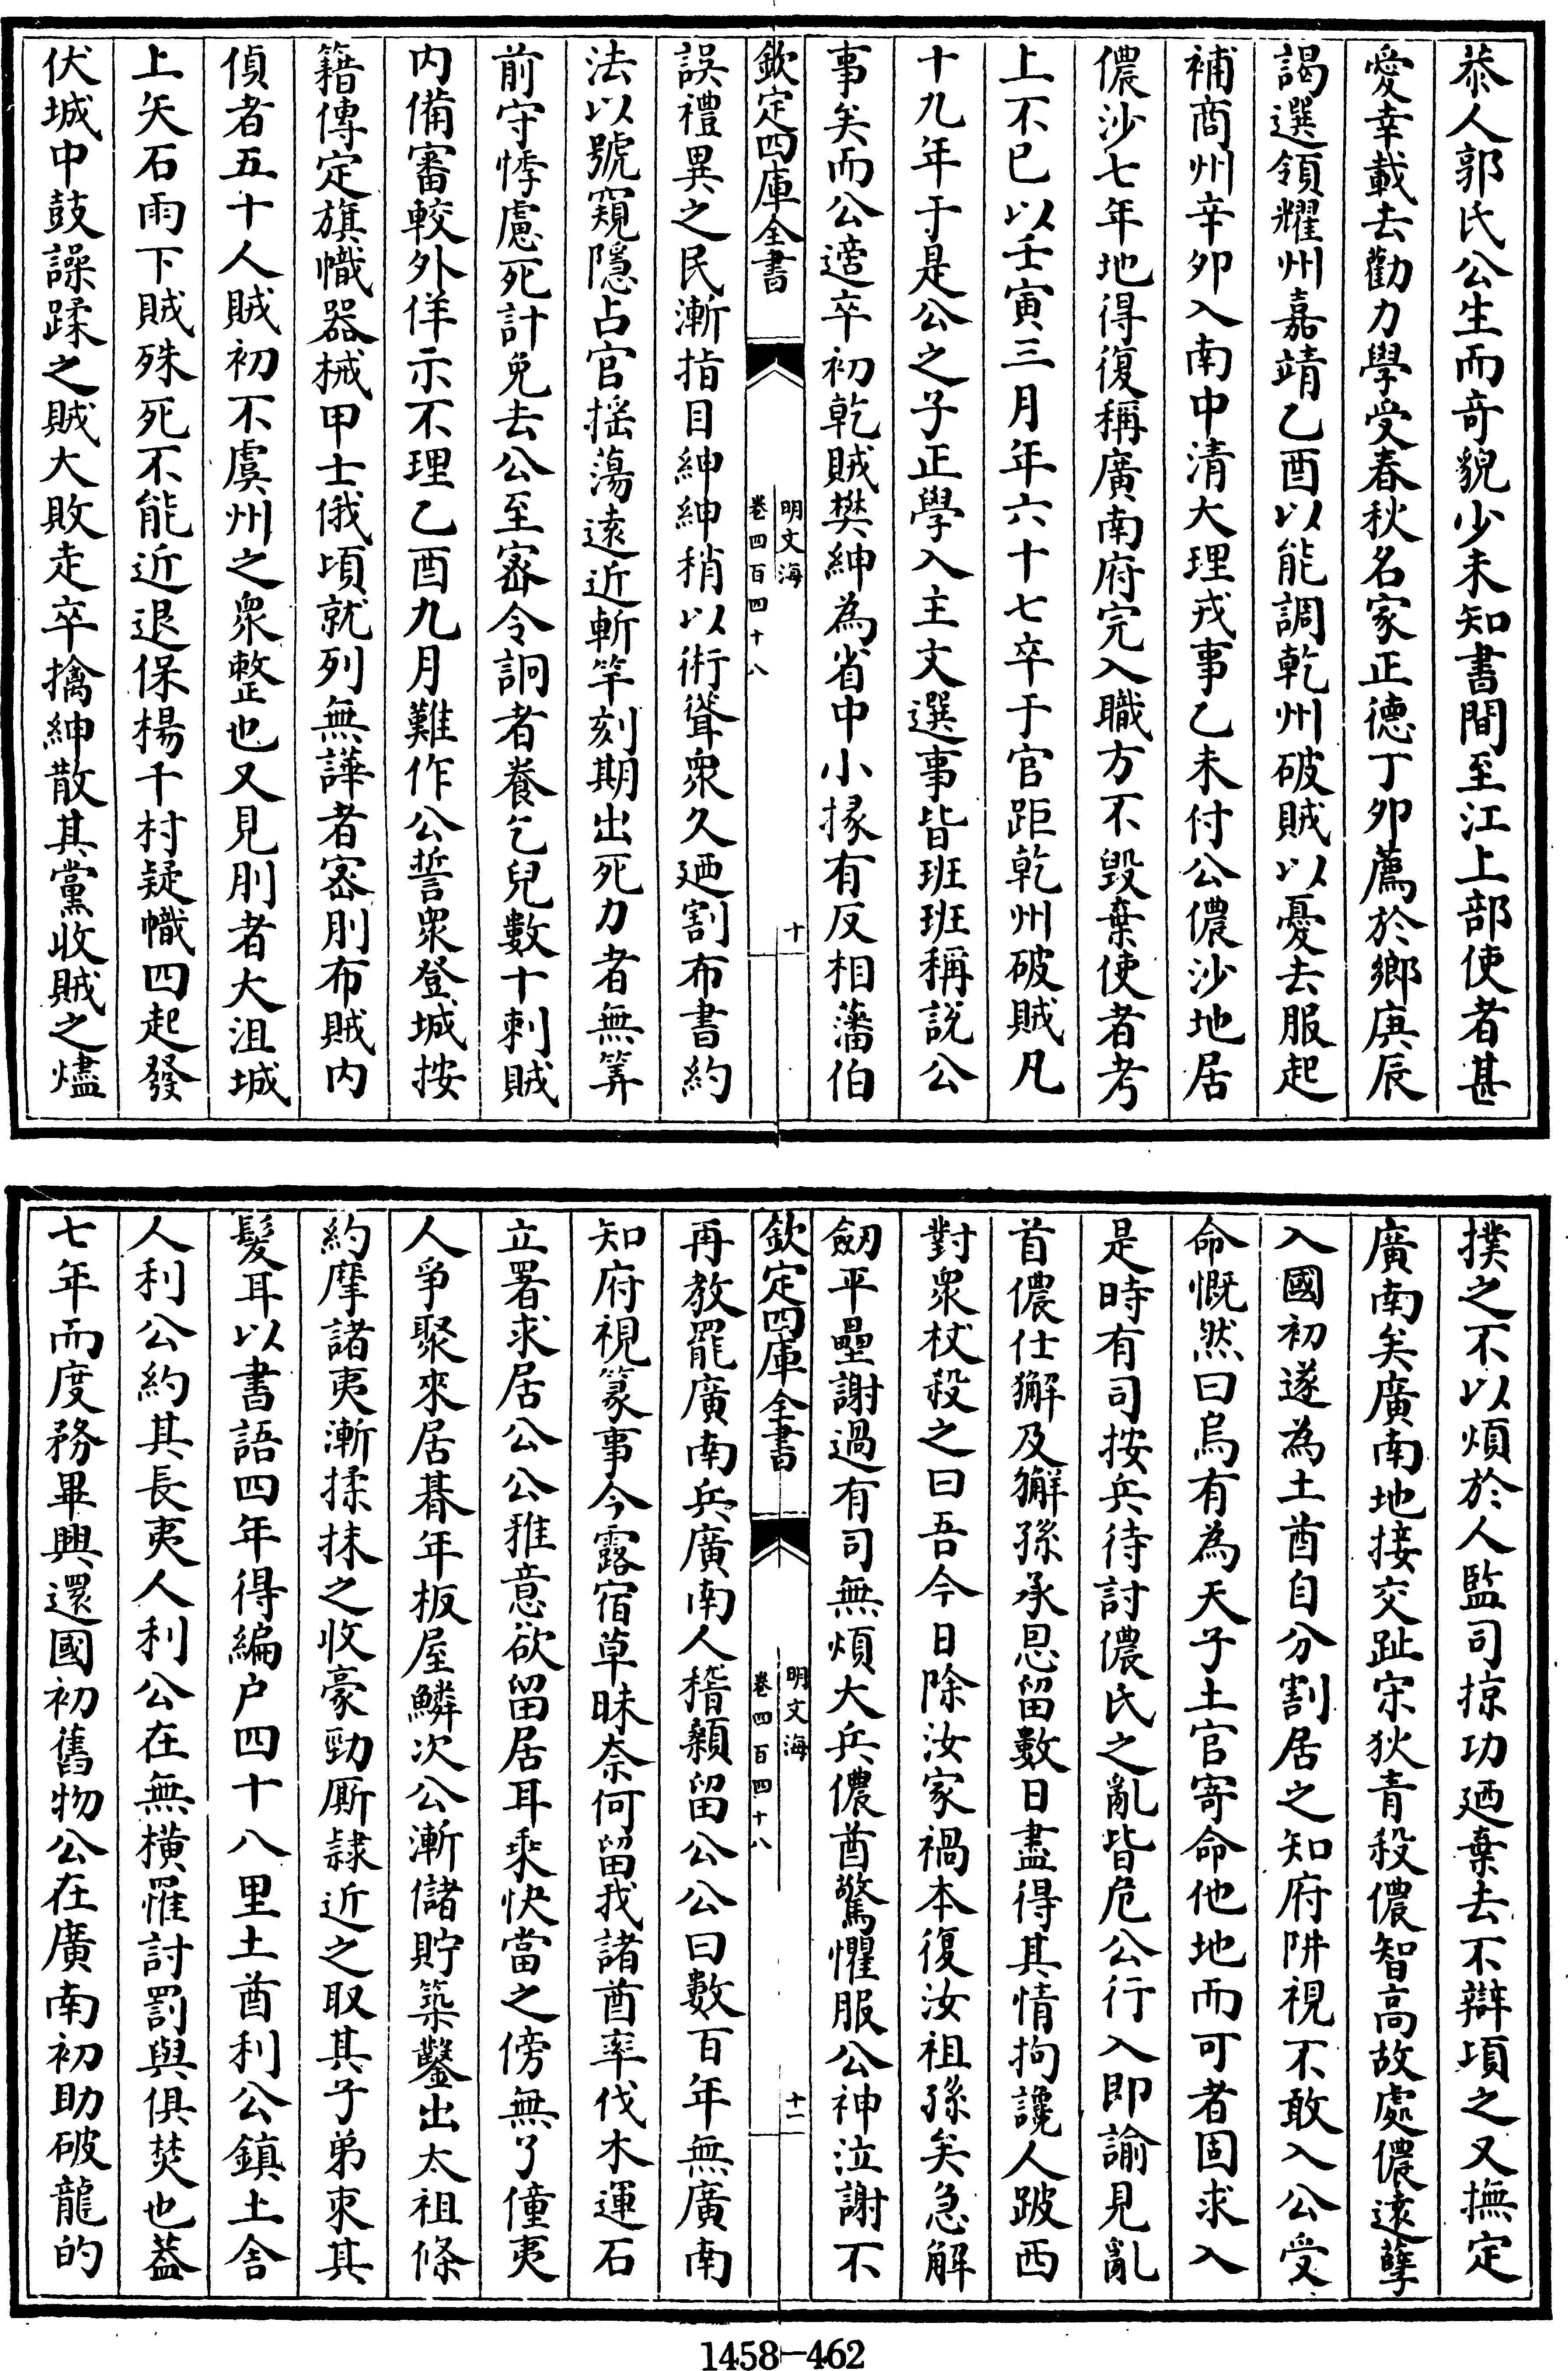 恭人郭氏公生而奇貌少未知書間至江上部使者甚
愛幸載去勸力學受春秋名家正德丁卯薦於鄉庚辰
謁選領耀州嘉靖乙酉以能調乾州破賊以憂去服起
補商州辛卯入南中清大理戎事乙未付公儂沙地居
儂沙七年地得復稱廣南府完入職方不毀棄使者考
上不已以壬寅三月年六十七卒于官距乾州破賊凡
十九年于是公之子正學入主文選事皆班班稱說公
事矣而公適卒初乾賊樊紳為省中小掾有反相藩伯
欽定四庫全書
明文海
卷四百四十八
十
誤禮異之民漸指目紳紳稍以術聳衆久廼割布書約
法以號窺隱占官揺蕩遠近斬竿刻期出死力者無筭
前守悸慮死計免去公至宻令詗者養乞兒數十刺賊
内備審較外佯示不理乙酉九月難作公誓衆登城按
籍傳定旗幟器械甲士俄頃就列無譁者宻刖布賊内
偵者五十人賊初不虞州之衆整也又見刖者大沮城
上矢石雨下賊殊死不能近退保楊千村疑幟四起發
伏城中鼓譟蹂之賊大敗走卒擒紳散其黨收賊之燼
撲之不以煩於人監司掠功廼棄去不辯頃之又撫定
廣南矣廣南地接交趾宋狄青殺儂智高故處儂逺孽
入國初遂為土酋自分割居之知府阱視不敢入公受
命慨然曰烏有為天子土官寄命他地而可者固求入
是時有司按兵待討儂氏之亂皆危公行入即諭見亂
首儂仕獬及獬孫承恩留數日盡得其情拘讒人跛西
對衆杖殺之曰吾今日除汝家禍本復汝祖孫矣急解
劒平壘謝過有司無煩大兵儂酋驚懼服公神泣謝不
欽定四庫全書
明文海
卷四百四十八
十一
再教罷廣南兵廣南人稽顙留公公曰數百年無廣南
知府視篆事今露宿草昧奈何留我諸酋率伐木運石
立署求居公公雅意欲留居耳乘快當之傍無了僮夷
人爭聚來居朞年板屋鱗次公漸儲貯築鑿出太祖條
約摩諸夷漸揉抹之收豪勁厮隷近之取其子弟朿其
髮耳以書語四年得編户四十八里土酋利公鎮土舍
人利公約其長夷人利公在無横罹討罰與俱焚也葢
七年而度務畢興還國初舊物公在廣南初助破龍的
1458—462